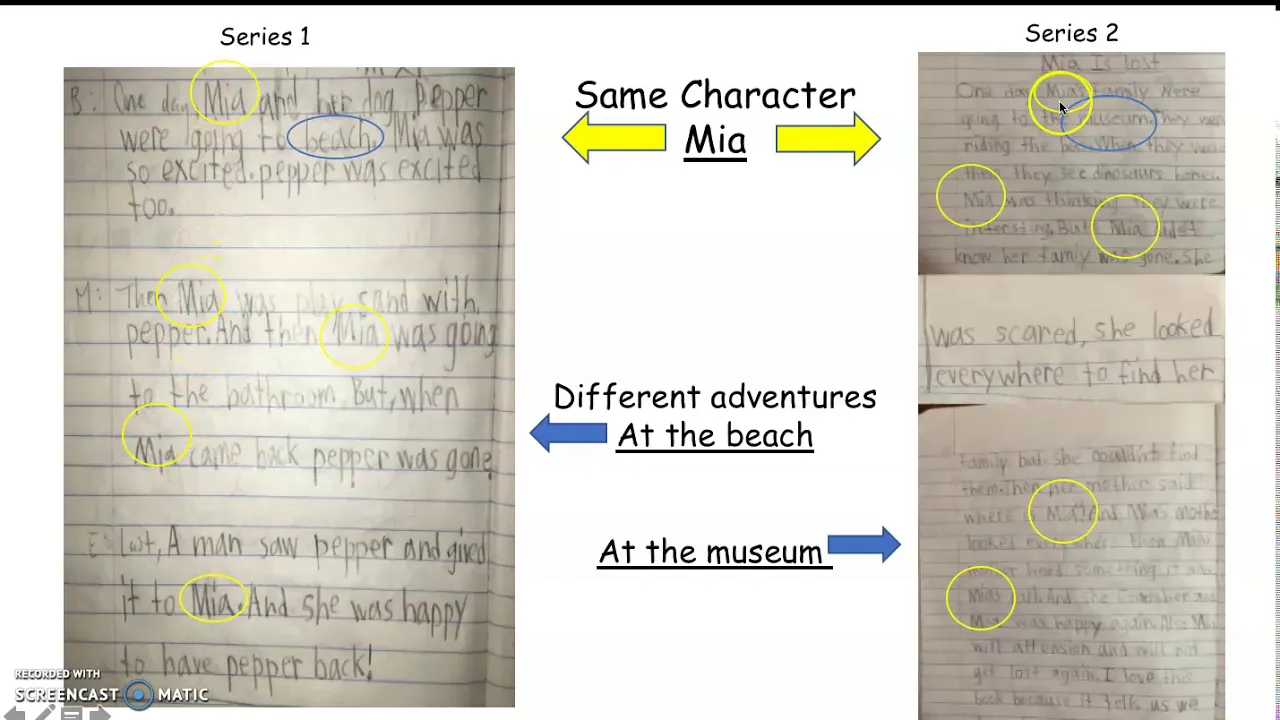 Series 1
B: One day Mia and her dog pepper
were going to beach. Mia was
so excited. pepper was excited
too.
M: Then Mia was play sand with
pepper. And then Mia was going
to the bathroom. But, when
Mia came back pepper was gone.
E: Last, A man saw pepper and gived
it to Mia. And she was happy
to have pepper back!
RECORDED WITH
SCREENCAST MATIC
Same Character
Mia
Different adventures
At the beach
At the museum
Series 2
Mia Is lost
One day Mias family were
going to the museum. They were
riding the bus. When they were
they see dinosaurs bones.
Mia was thinking they were
intersting. But Mia didet
know her family was gone. She
was scared, she looked
everywhere to find her
family but she couldn't find
them. Then her mother said
where is Mia? And
looked everywhere then
heard something it was
Mias And she
Mia was happy again. Also Mia
will attension and will not
get lost again. I love this
book because it tells us we